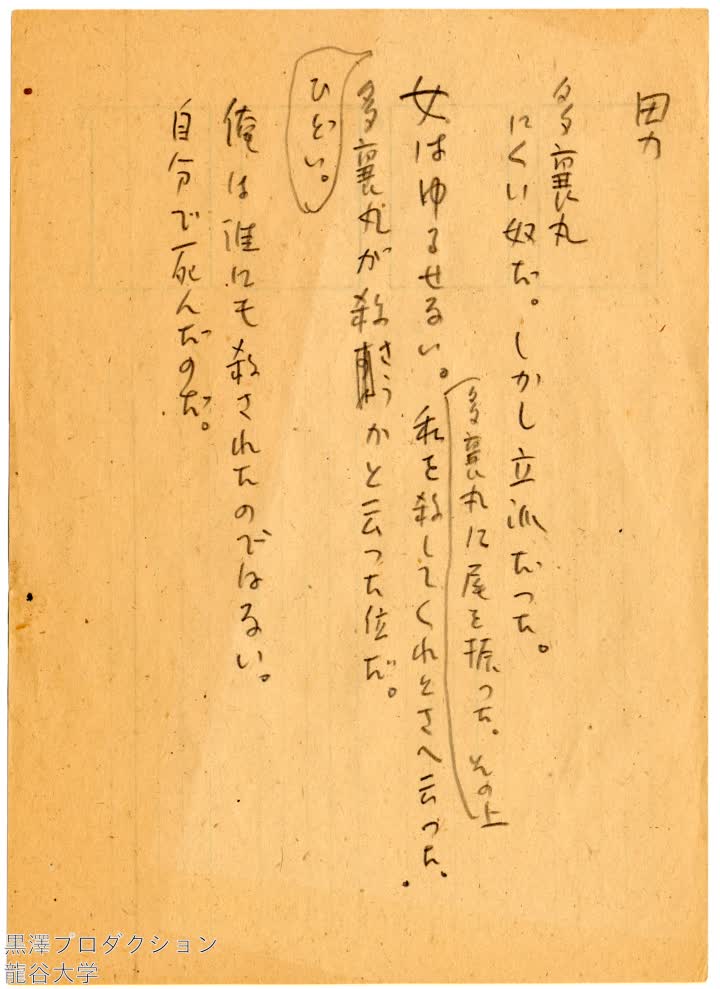 男
多襄丸
にくい奴だ。しかし立派だった。
多襄丸に尾を振った。その上
女はゆるせない。私を殺してくれとさへ云った。
多襄丸が殺さうかと云った位だ。
ひどい。
俺は誰にも殺されたのではない。
自分で死んだのだ。
黒澤プロダクション
龍谷大学